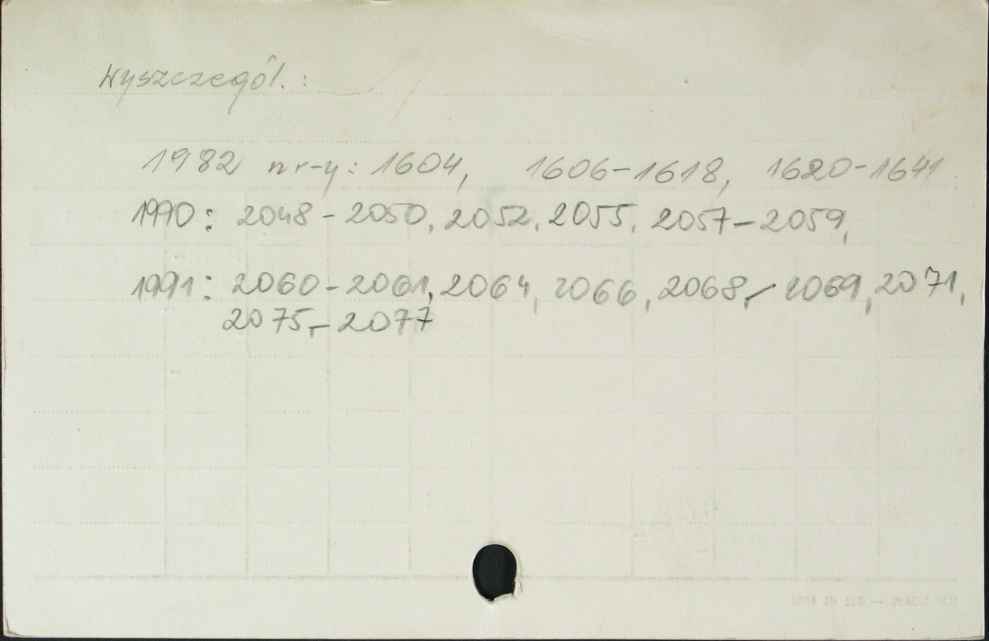 Wyszczegól.:
1982 nr-y: 1604, 1606-1618, 1620-1641
1990: 2048-2050, 2052, 2055, 2057-2059,
1991: 2060-2061, 2064, 2066, 2068,-2069, 2071,
2075,-2077